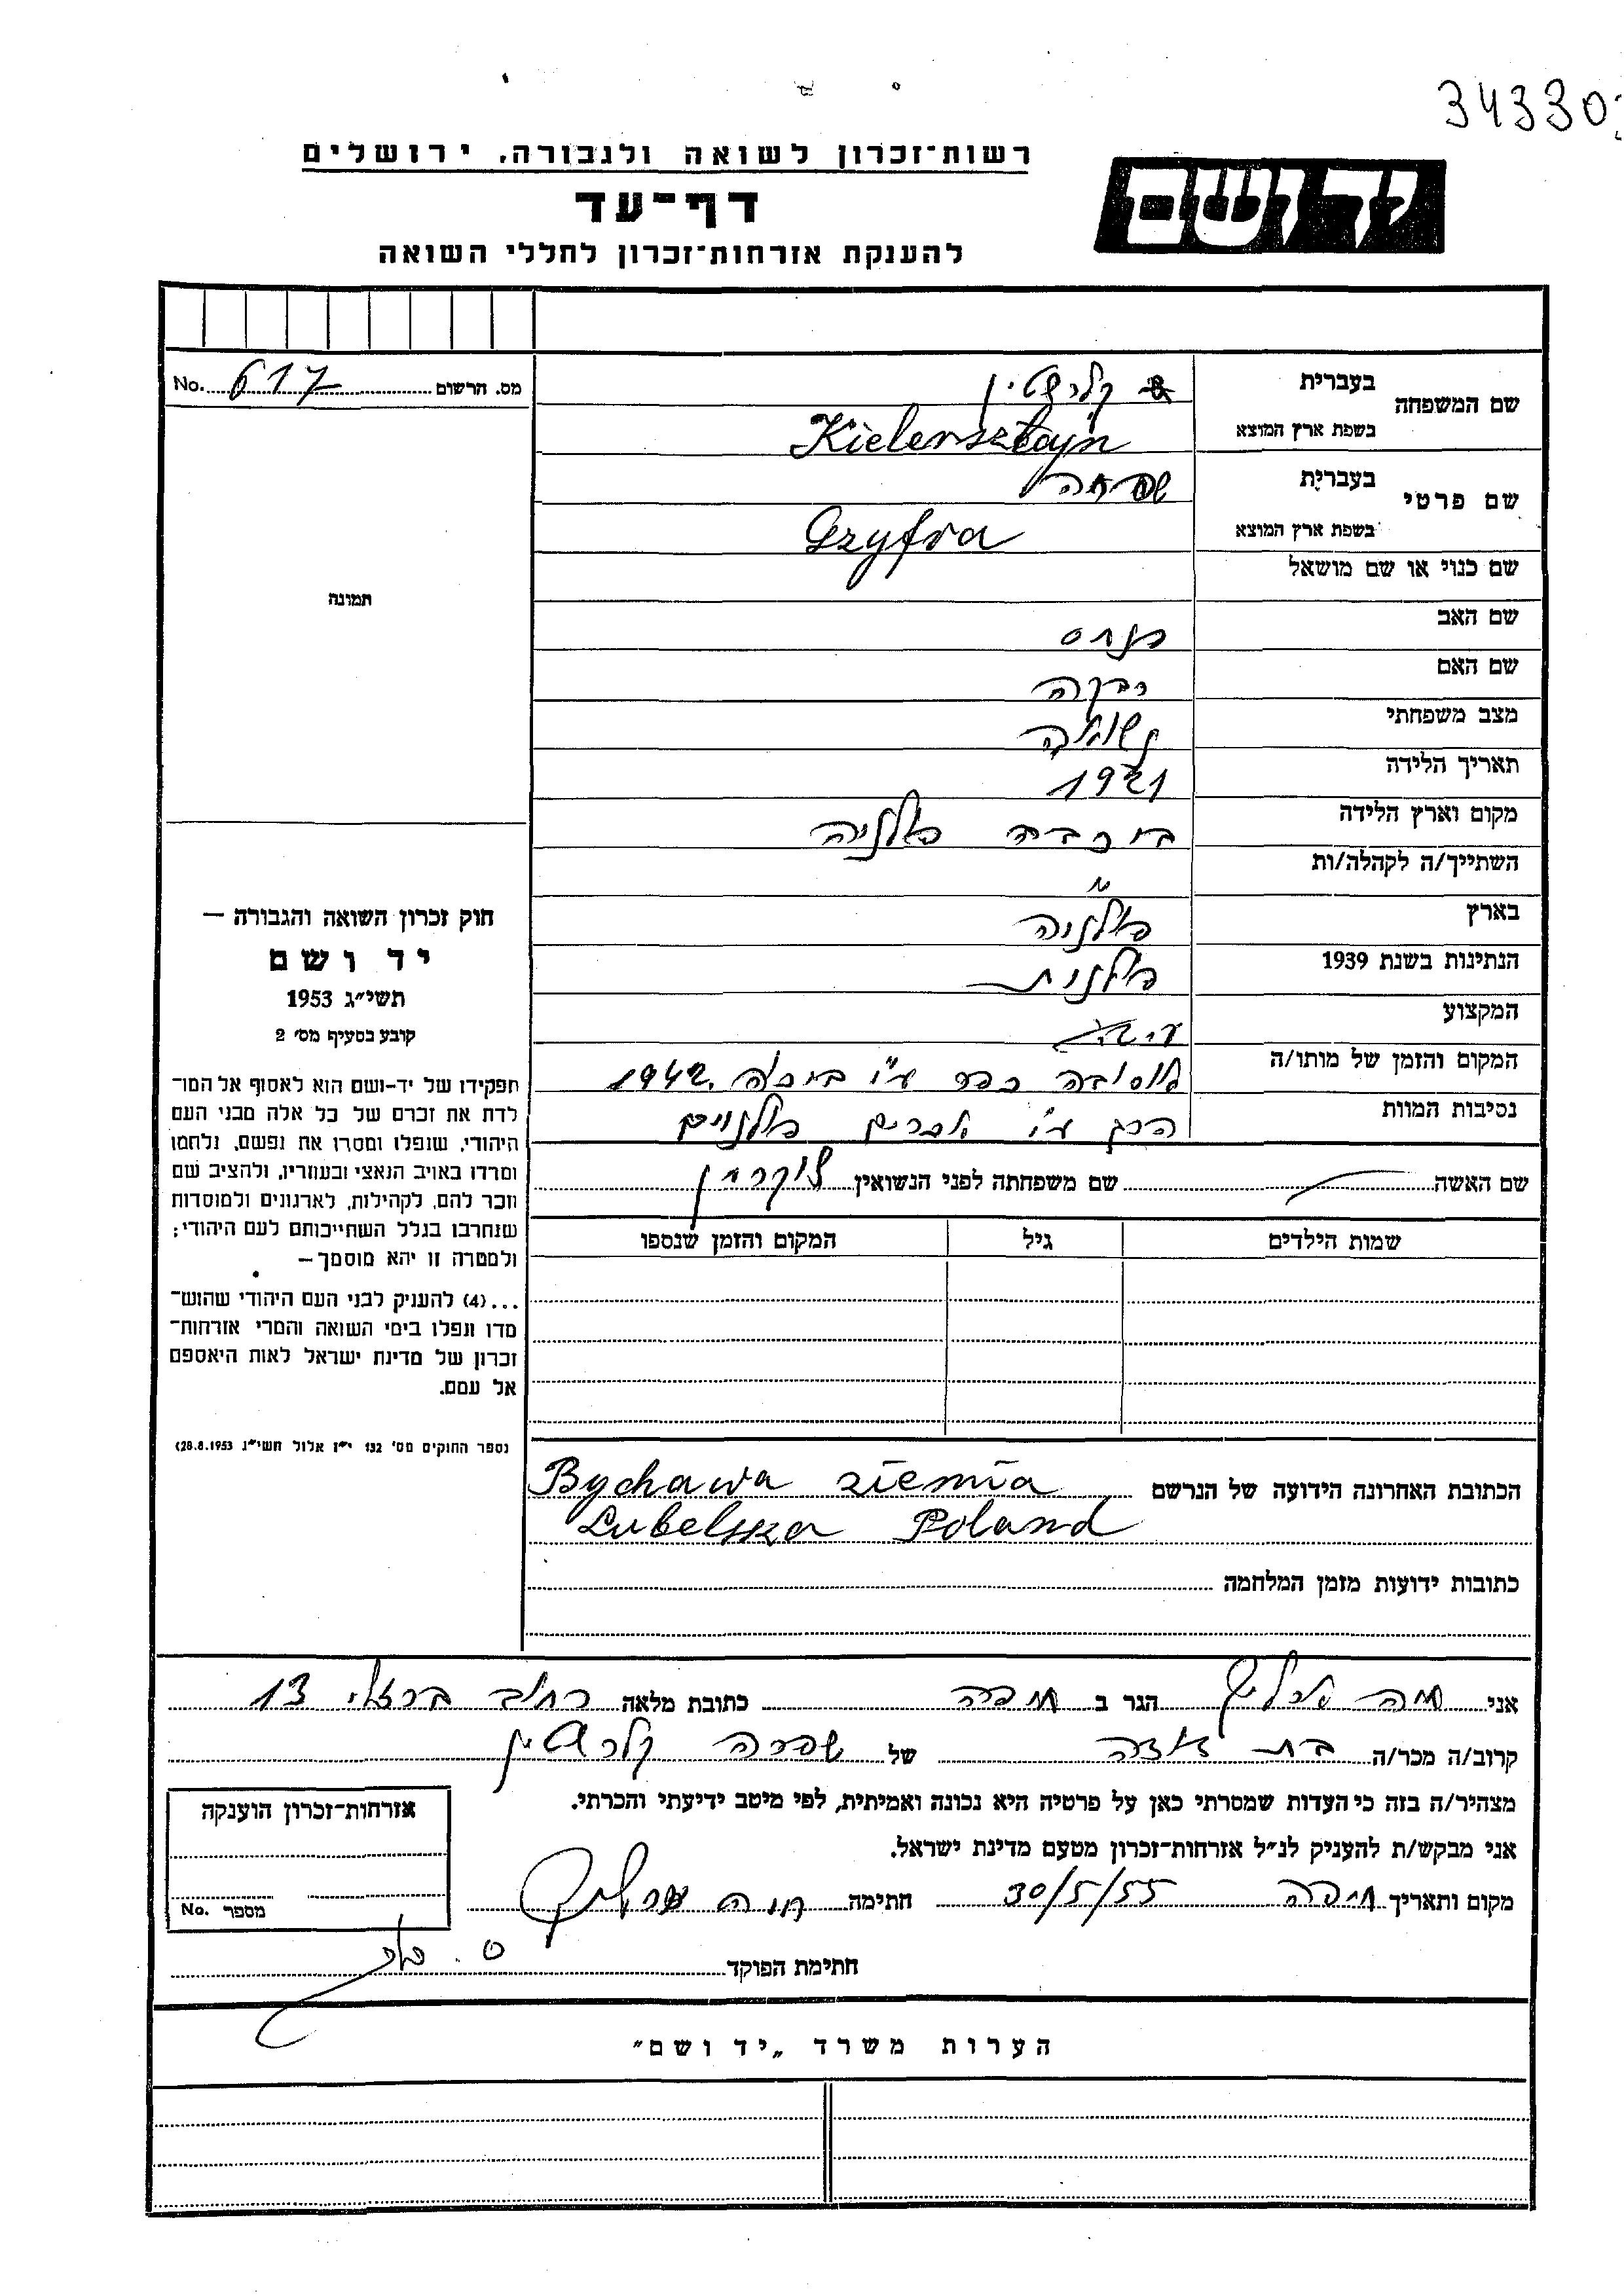 34330
רשות־זכרון לשואה ולגבורה, ירושלים
יד ושם
דף־עד
להענקת אזרחות־זכרון לחללי השואה
מס. הרשום 617 No.
שם המשפחה
בעברית קלרשטיין
בשפת ארץ המוצא Kielersztajn
שם פרטי
בעברית שפרה
בשפת ארץ המוצא Szyfra
תמונה
שם כנוי או שם מושאל
שם האב פנחס
שם האם רבקה
מצב משפחתי נשואה
תאריך הלידה 1921
מקום וארץ הלידה פולניה
השתייך/ה לקהלה/ות "
בארץ פולניה
הנתינות בשנת 1939 פולנית
המקצוע
המקום והזמן של מותו/ה כפר ע"י 1942
נסיבות המוות ע"י פולנים
שם האשה שם משפחתה לפני הנשואין צוקרמן
שמות הילדים גיל המקום והזמן שנספו
חוק זכרון השואה והגבורה —
יד ושם
תשי״ג 1953
קובע בסעיף מס׳ 2
תפקידו של יד-ושם הוא לאסוף אל המו־
לדת את זכרם של כל אלה מבני העם
היהודי, שנפלו ומסרו את נפשם, נלחמו
ומרדו באויב הנאצי ובעוזריו, ולהציב שם
וזכר להם, לקהילות, לארגונים ולמוסדות
שנחרבו בגלל השתייכותם לעם היהודי;
ולמטרה זו יהא מוסמך—
...(4) להעניק לבני העם היהודי שהוש־
מדו ונפלו בימי השואה והמרי אזרחות־
זכרון של מדינת ישראל לאות היאספם
אל עמם.
(ספר החוקים מס׳ 132 י״ז אלול תשי״ג 28.8.1953)
הכתובת האחרונה הידועה של הנרשם Bychawa ziemia
Lubelska Poland
כתובות ידועות מזמן המלחמה
אני חוה הגר ב חיפה כתובת מלאה רחוב ברזילי 13
קרוב/ה מכר/ה בת דודה של שפרה קלרשטיין
מצהיר/ה בזה כי העדות שמסרתי כאן על פרטיה היא נכונה ואמיתית, לפי מיטב ידיעתי והכרתי.
אני מבקש/ת להעניק לנ״ל אזרחות־זכרון מטעם מדינת ישראל.
מקום ותאריך חיפה 30/5/55 חתימה חוה
אזרחות־זכרון הוענקה
מספר No.
חתימת הפוקד
הערות משרד „יד ושם״